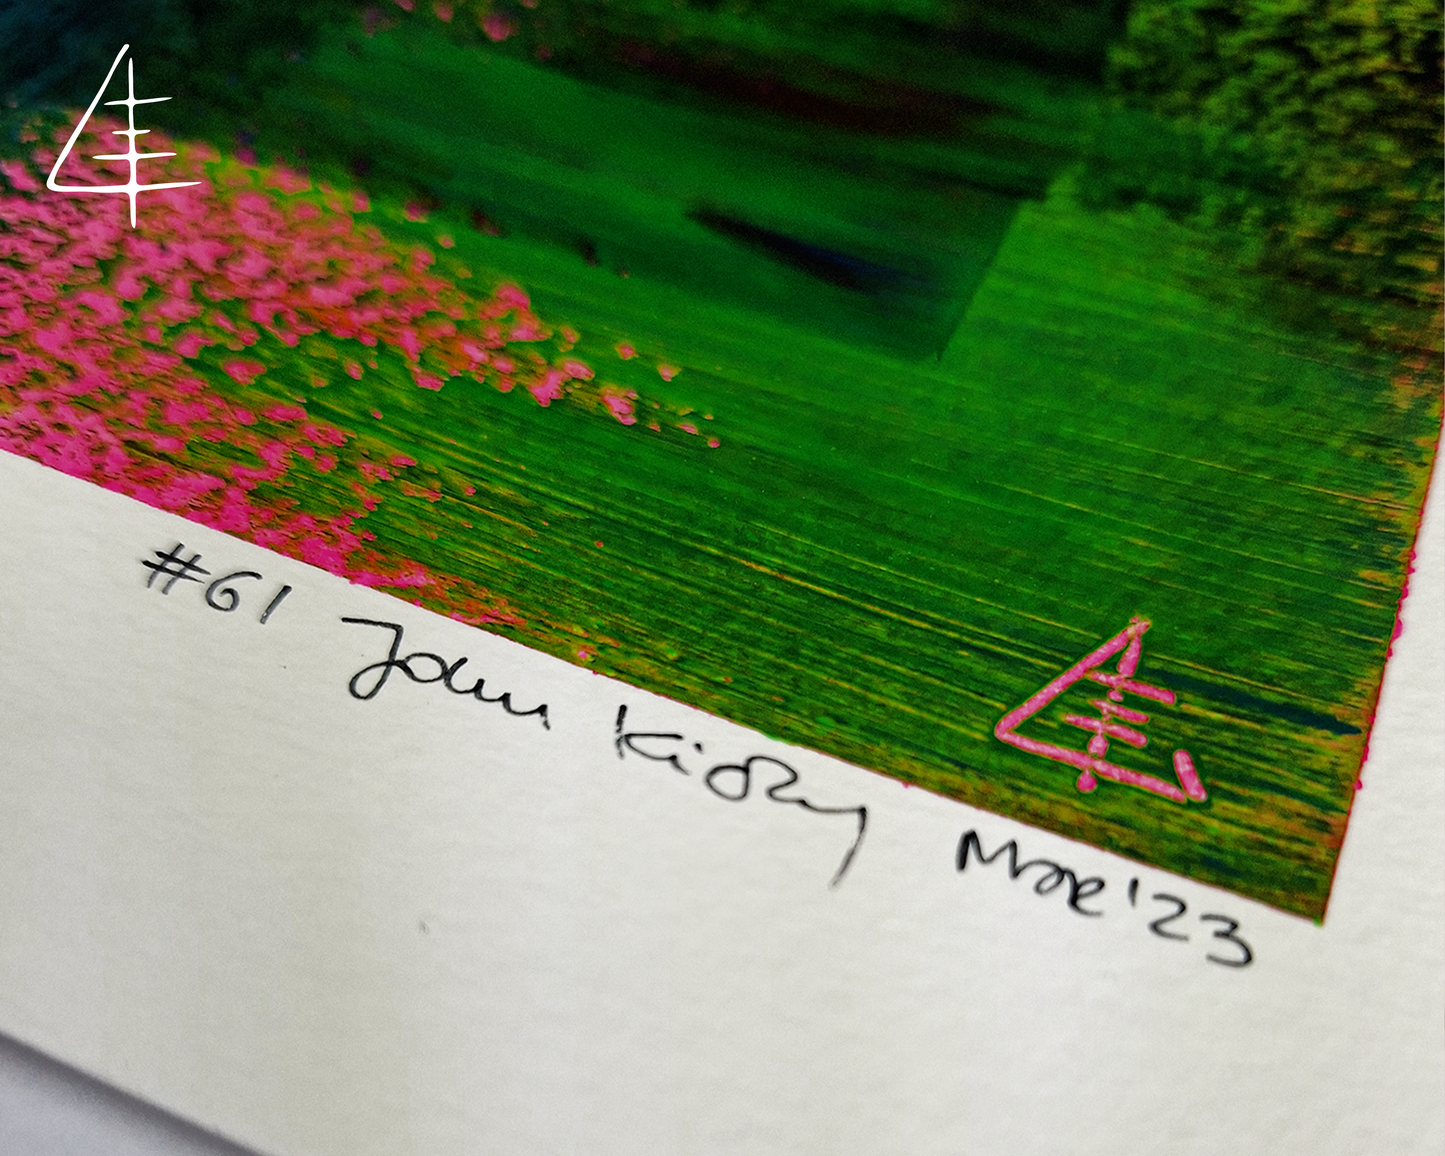 #61 John Mar '23